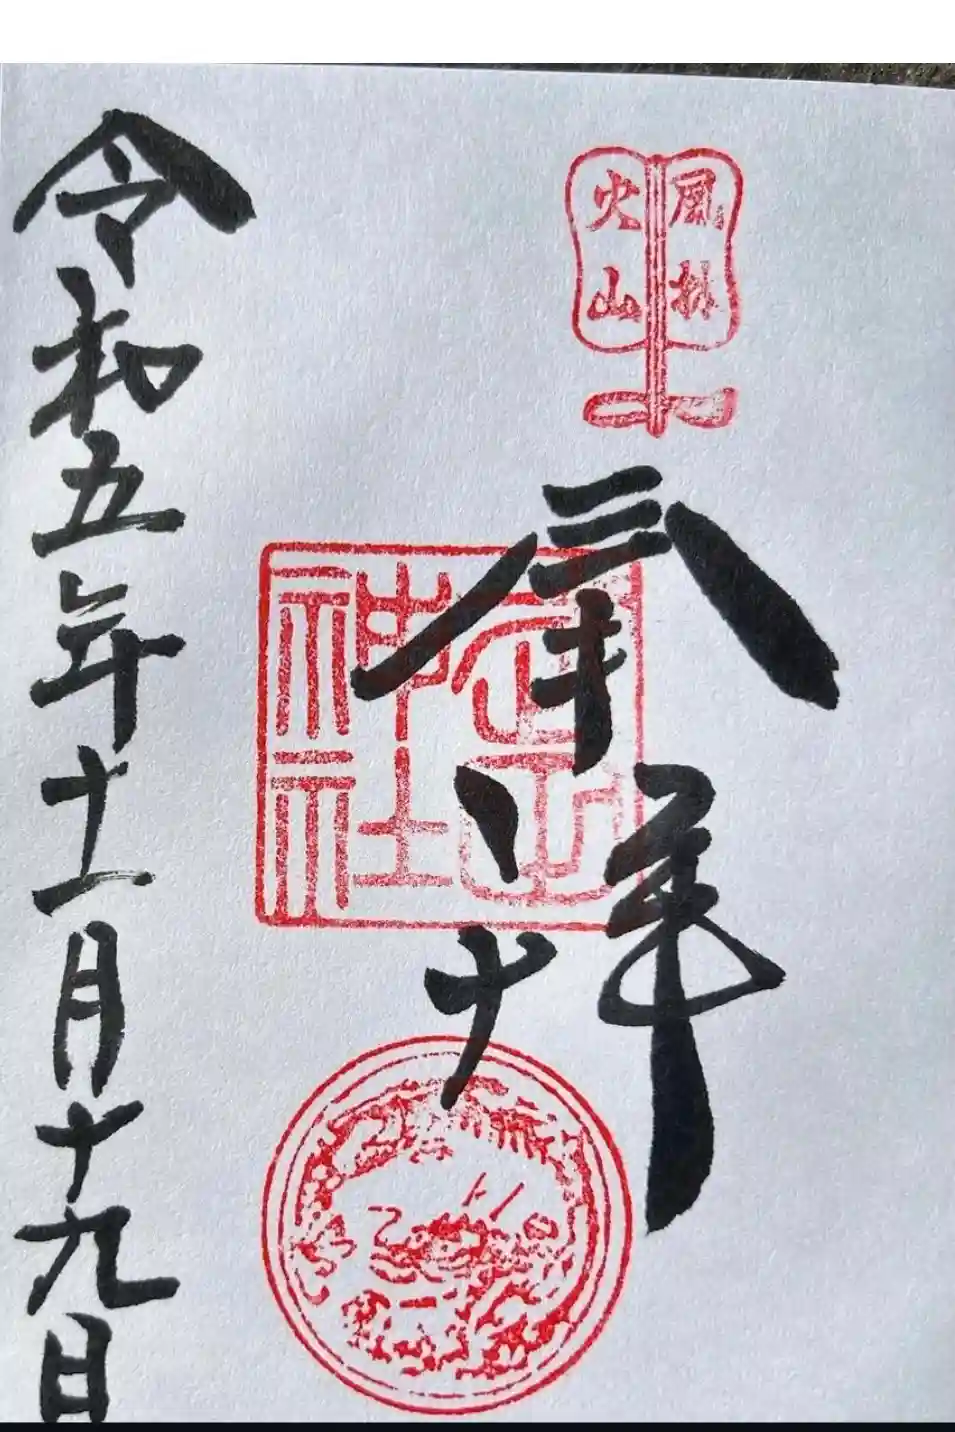 風林
火山
奉拝
神社
令和五年十一月十九日